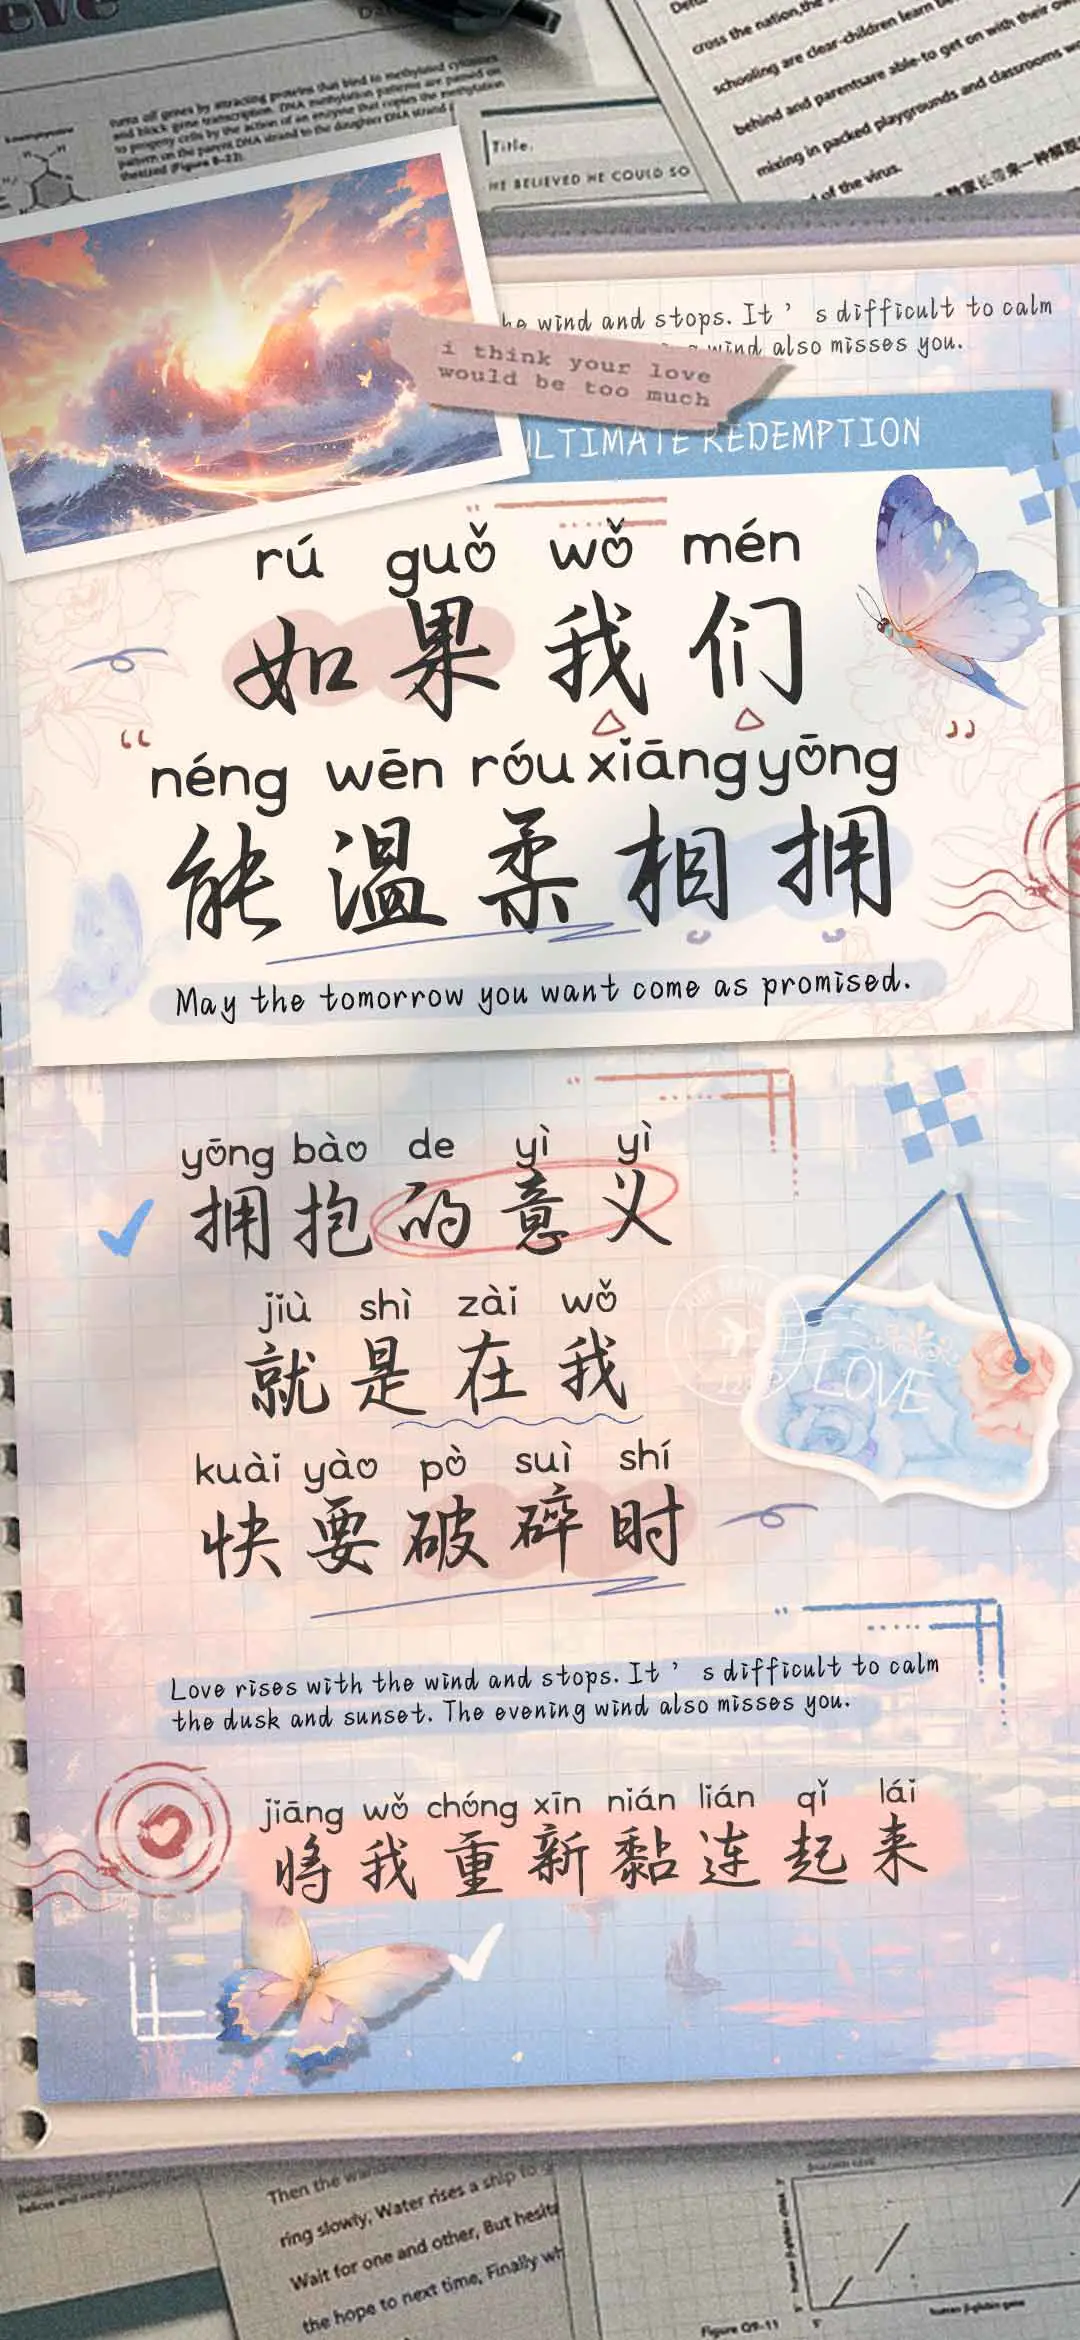 eve
turns off genes by attracting proteins that bind to methylated cytosines
and block gene transcription. DNA methylation patterns are passed on
to progeny cells by the action of an enzyme that copies the methylation
pattern on the parent DNA strand to the daughter DNA strand
thesized (Figure 8–22).
Title.
HE BELIEVED HE COULD SO
cross the nation, the
schooling are clear-children learn be
behind and parentsare able-to get on with their own
mixing in packed playgrounds and classrooms wo
of the virus.
家长带来一种解脱
he wind and stops. It ’ s difficult to calm
wind also misses you.
i think your love
would be too much
ULTIMATE REDEMPTION
rú guǒ wǒ mén
如果我们
“ ”
néng wēn róu xiāng yōng
能温柔相拥
May the tomorrow you want come as promised.
yōng bào de yì yì
拥抱的意义
jiù shì zài wǒ
就是在我
LOVE
kuài yào pò suì shí
快要破碎时
Love rises with the wind and stops. It ’ s difficult to calm
the dusk and sunset. The evening wind also misses you.
jiāng wǒ chóng xīn nián lián qǐ lái
将我重新黏连起来
Then the wa
ring slowly, Water rises a ship to
Wait for one and other, But hesita
the hope to next time, Finally wh
Figure Q9–11
5'
human β-globin gene